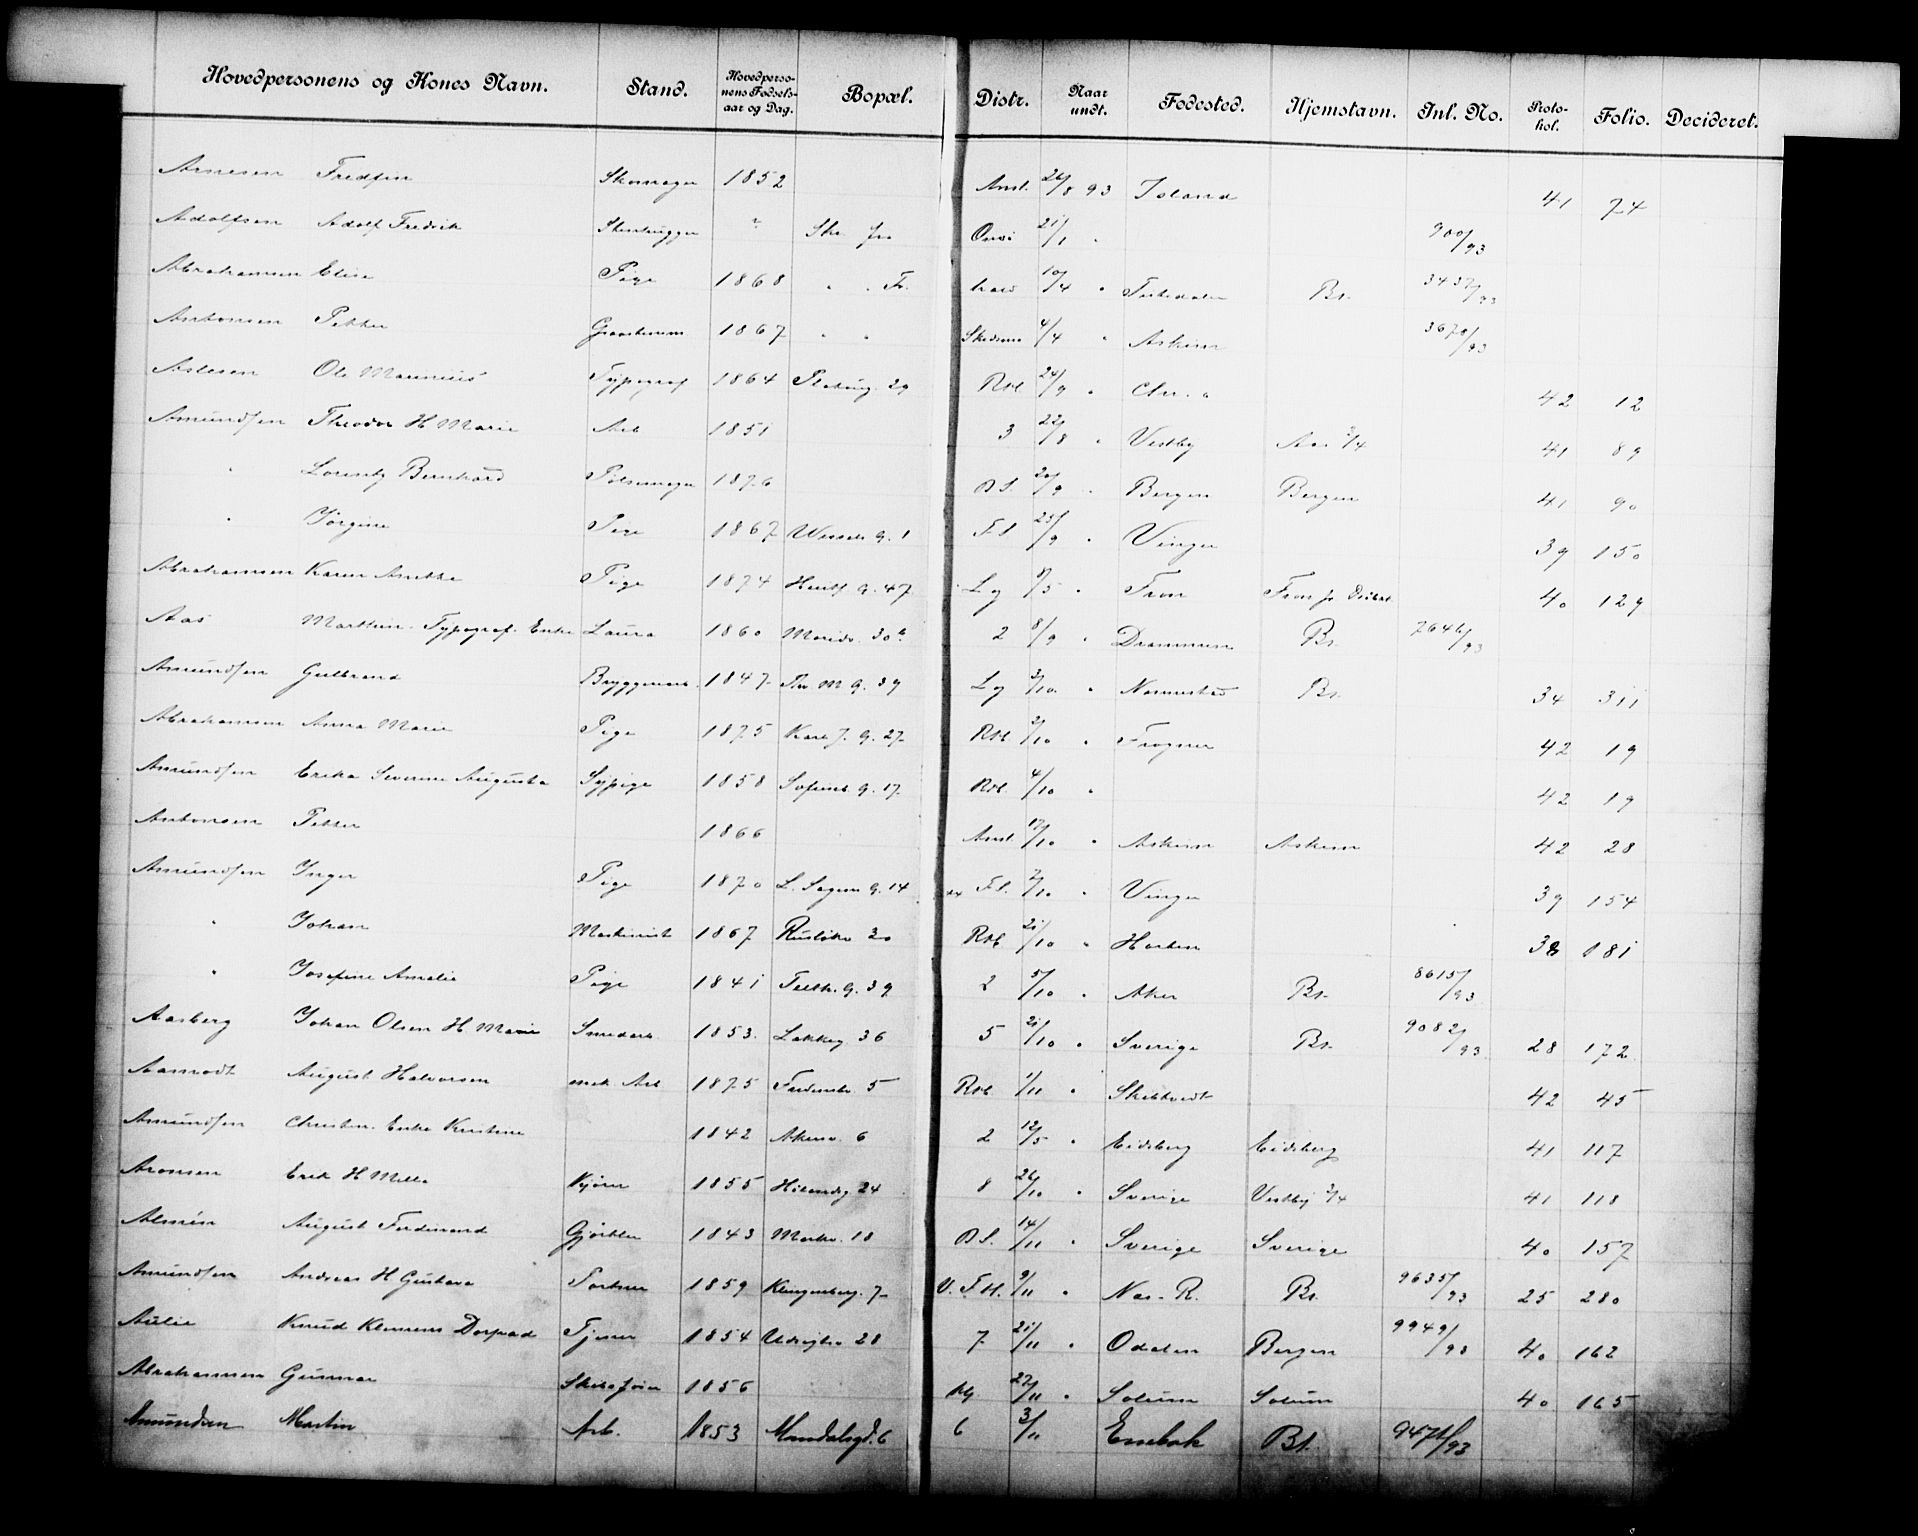 Hovedpersonens og Kones Navn. Stand. Hovedpersonens Fødselsaar og Dag. Bopæl. Distr. Naar undt. Fødested. Hjemstavn. Jnl. No. Protokol. Folio. Decideret.
Arnesen Skomager 1852 Anst. 26/8 93 Island 41 74
Adolfsen Adolf Fredrik ? 21/1 " 900/93
Abrahamsen Elise Pige 1868 " " Fr. 10/4 " Bs. 3437/93
Antonsen Petter 1867 " " Skedsmo 4/4 " Askim 3670/93
Aslesen Ole Marinius Typograf 1864 29 Rst. 24/9 " Chr.a 42 12
Amundsen Theodor H Marie Arb 1851 3 22/8 " Vestby Aas 3/4 41 89
" Lorentz Bernhard Pølsemager 1876 B S. 20/9 " Bergen Bergen 41 90
" Jørgine Pige 1867 Wessels g. 1 F.S 25/9 " Vinger 39 150
Abrahamsen Karen Anette Pige 1874 g. 47 Lg /5 " Fron Fron 40 129
Aas Marthin Typograf Enke Laura 1860 Marido. 30 b 2 8/9 " Drammen Bs. 7646/93
Amundsen Gulbrand Bryggeriarb. 1847 Thv M g. 39 Lg 3/10 " Nannestad Bs. 34 311
Abrahamsen Anna Marie Pige 1875 Karl J. g. 27 Rst. 2/10 " Frogner 42 19
Amundsen Erika Severine Augusta Sypige 1858 Sofienb. g. 17 Rst. 4/10 " 42 19
Antonsen Petter 1866 Anst. 17/10 " Askim Askim 42 28
Amundsen Inger Pige 1870 L. Sagens g. 14 F.S. 2/10 " Vinger 39 154
" Johan Maskinist 1867 Rusløkv 30 Rst. 21/10 " Horten 38 181
" Josefine Amalie Pige 1841 Toftes g. 39 2 5/10 " Aker Bs. 8615/93
Aasberg Johan Olsen H Marie Smedarb. 1853 Lakkeg 36 5 21/10 " Sverige Bs. 9082/93 28 172
Aamodt August Halvorsen mek Arb 1875 Fredensb. 5 Rst. 1/11 " Skibtvedt 42 45
Amundsen Christen. Enke Kristine 1842 Akersv. 6 2 12/5 " Eidsberg Eidsberg 41 117
Aronsen Erik H Mille Kjører 1855 24 8 26/10 " Sverige Vestby 3/4 41 118
Almén August Ferdinand Gjørtler 1843 Markv. 18 B S. 14/11 " Sverige Sverige 40 157
Amundsen Andreas H Gustava Portner 1859 Klingenberg. 7 V. F.H. 9/11 " Næs. R. Bs. 9635/93 25 280
Aulie Knud Klemens Tjener 1854 Udsigten 28 7 21/11 " Odalen Bergen 9949/93 40 162
Abrahamsen Gunnar 1856 22/11 " Solum Solum 40 165
Amundsen Martin Arb. 1853 Mandalsgd. 6 6 3/11 Enebak Bs. 9471/93